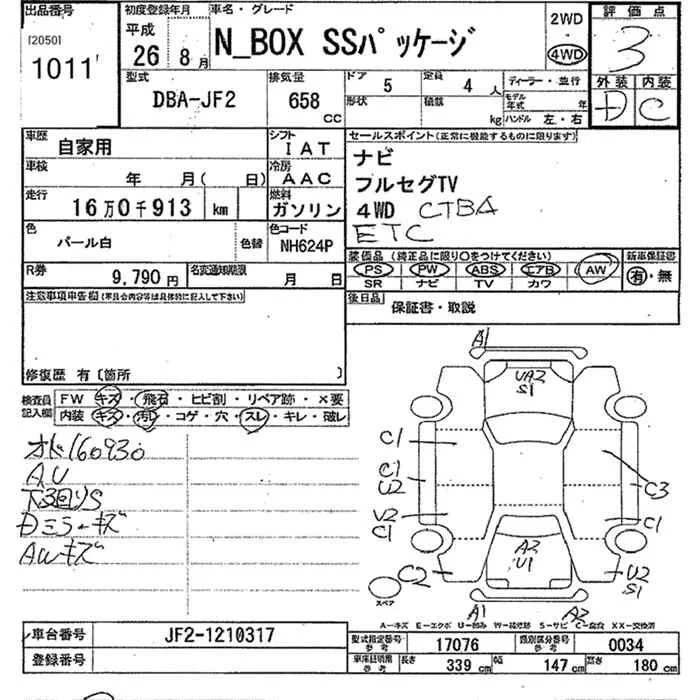 出品番号
[2050]
1011
初度登録年月
平成 26 8月
車名・グレード
N_BOX SSパッケージ
2WD
4WD
評価点
3
外装 内装
D C
型式
DBA-JF2
排気量
658 CC
ドア 5
定員 4 人
形状
積載 kg
ディーラー・並行
モデル年式 年
ハンドル 左・右
車歴
自家用
シフト
IAT
車検
年 月( 日)
冷房
AAC
走行
16万0千913 km
燃料
ガソリン
色
パール白
色替
色コード
NH624P
R券
9,790円
名変通知期限
月 日
セールスポイント(正常に機能するものに限ります)
ナビ
フルセグTV
4WD CTBA
ETC
装備品(純正品に限り〇をつけてください)
PS PW ABS エアB AW
SR ナビ TV カワ
新車保証書
有・無
後日品
保証書・取説
注意事項申告欄(不具合内容等は具体的に記入して下さい)
修復歴 有〔箇所 〕
検査員記入欄
FW キズ・飛石・ヒビ割・リペア跡・×要
内装 キズ・汚れ・コゲ・穴・スレ・キレ・破レ
オド160930
AU
下回りS
Dミラーキズ
AWキズ
A1
UA2
S1
C1
C1
U2
C3
U2
C1
C1
A2
U1
C2
U2
S1
スペア
A1
A2
A-キズ E-エクボ U-凹み W-補修跡 S-サビ C-腐食 XX-交換済
車台番号
JF2-1210317
登録番号
型式指定番号 参考
17076
類別区分番号 参考
0034
車庫証明用 参考
長さ 339 cm
幅 147 cm
高さ 180 cm